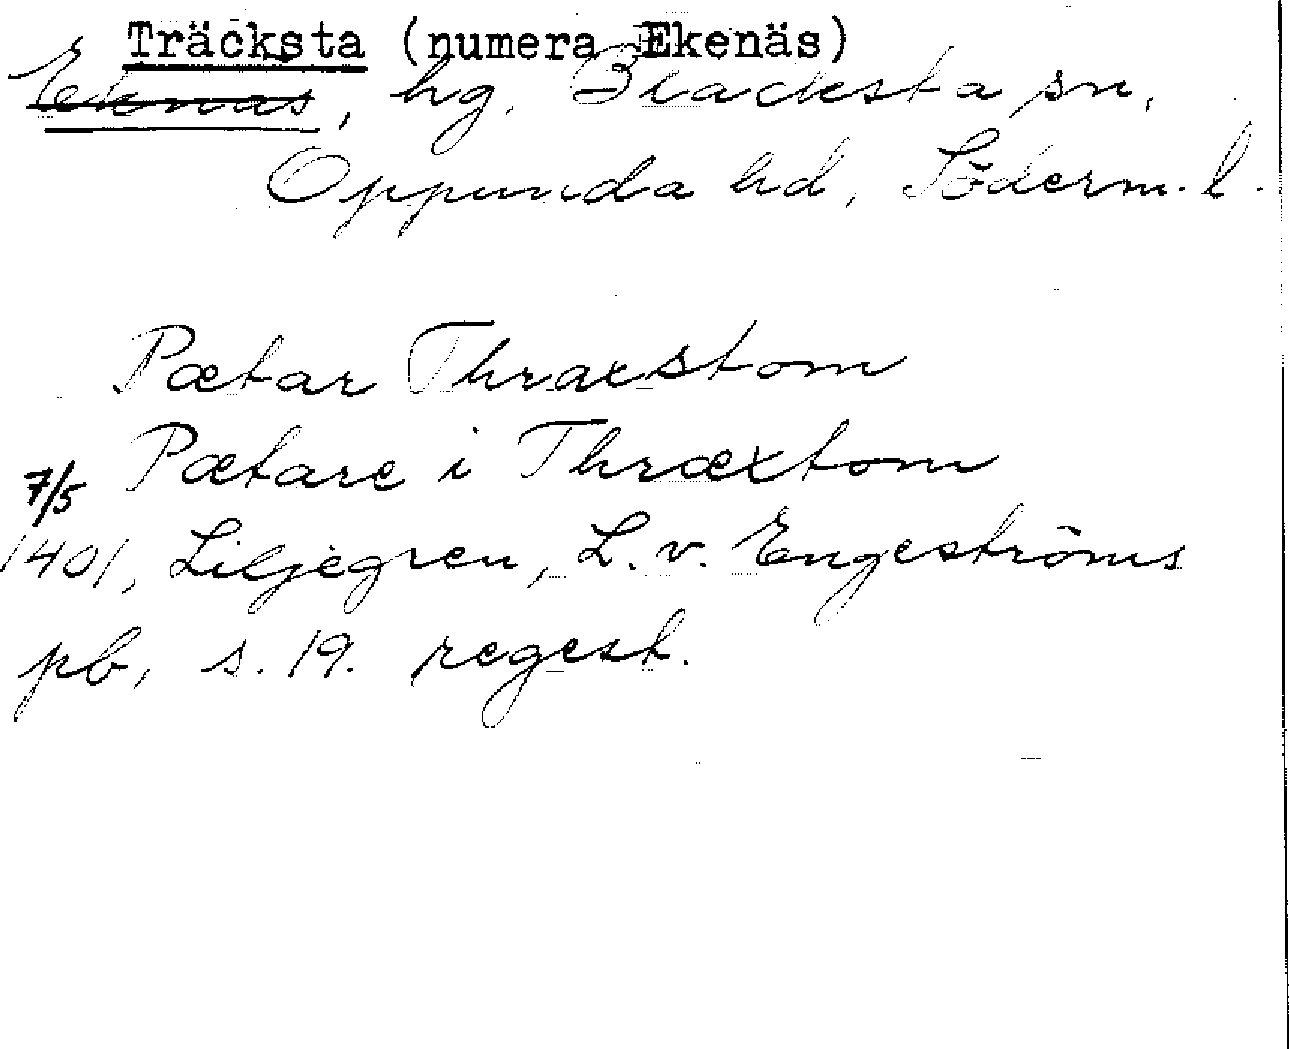 Träcksta (numera Ekenäs)
Ekenäs, hg, Blacksta sn,
Oppunda hd, Söderm. l.
Pætar Thraxstom
Pætare i Thræxtom
7/5
1401, Liljegren, L. v. Engeströms
pb, s. 19. regest.